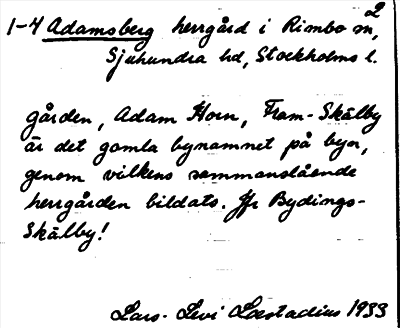 2
1-4 Adamsberg herrgård i Rimbo m,
Sjuhundra hd, Stockholms l.
gården, Adam Horn, Fram-Skälby
är det gamla bynamnet på byn,
genom vilkens sammanslående
herrgården bildats. Jfr Bydings-
Skälby!
Lars-Levi Læstadius 1933